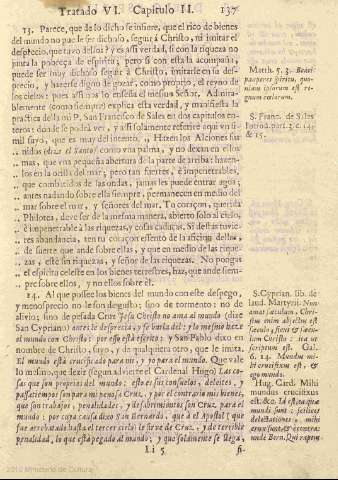 Tratado VI. Capitulo II. 137
13. Parece, que de lo dicho se infiere, que el rico de bienes
del mundo no puede ser dichoso, seguir à Christo, ni imitar el
desprecio, que tuvo dellos? y es assi verdad, si con la riqueza no
junta la pobreza de espiritu; pero si con esta la acompaña,
puede ser muy dichoso seguir à Christo, imitarle en su des-
precio, y hazerse digno de gozar, como proprio, el reyno de
los cielos; pues assi nos lo enseña el mesmo Señor. Admira-
blemente (como siempre) explica esta verdad, y manifiesta la
practica della mi P. San Francisco de Sales en dos capitulos en-
teros; donde se podrà ver, y assi solamente referirè aqui vn si-
mil suyo, que es muy del intento. ,, Hazen los Alciones sus
,, nidos (dize el Santo) como vna palma, y no dexan en ellos
,, mas, que vna pequeña abertura de la parte de arriba: hazen-
,, los en la orilla del mar; pero tan fuertes, è impenetrables,
,, que combatidos de las ondas, jamàs les puede entrar agua;
,, antes nadando sobre ella siempre, permanecen en medio del
,, mar sobre el mar, y señores del mar. Tu coraçon, querida
,, Philotea, deve ser de la mesma manera, abierto solo al cielo,
,, è impenetrable à las riquezas, y cosas caducas. Si dellas tuvie-
,, res abundancia, ten tu coraçon essento de la aficion dellas,
,, de suerte que ande sobre ellas, y que en medio de las rique-
,, zas, estè sin riquezas, y señor de las riquezas. No pongas
,, el espiritu celeste en los bienes terrestres, haz, que ande siem-
,, pre sobre ellos, y no ellos sobre èl.
14. Al que possee los bienes del mundo con este despego,
y menosprecio no le son de gusto; sino de tormento: no de
alivio; sino de pesada Cruz. Jesu Christo no ama al mundo (dize
San Cypriano) antes le desprecia, y se burla dèl: y lo mesmo haze
al mundo con Christo: por esso està escrito; y San Pablo dize en
nombre de Christo, suyo, y de qualquiera otro, que le imita.
El mundo està crucificado para mi, y yo para el mundo. Que vale
lo mesmo, que dezir (segun advierte el Cardenal Hugo) Las co-
sas que son proprias del mundo: esto es sus consuelos, deleites, y
passatiempos son para mi penosa Cruz, y por el contrario mis bienes,
que son trabajos, penalidades, y desabrimientos son Cruz para el
mundo: por cuya causa dixo San Bernardo, que à el Apostol (que
fue arrebatado hasta el tercer cielo) le sirve de Cruz, y de terrible
penalidad, lo que està pegado al mundo; y que solamente se llega,
Li 5 fi-
Matth. 5. 3. Beati
pauperes spiritu, quo-
niam ipsorum est re-
gnum cœlorum.
S. Franc. de Sales
Introd. part. 3. c. 14.
& 15.
S. Cyprian. lib. de
laud. Martyrii. Non
amat sæculum Chri-
stus enim abjectus est
sæculo, sicut & sæcu-
lum Christo: ita ut
scriptum est. Gal.
6. 14. Mundus mi-
hi crucifixus est, &
ego mundo.
Hug. Card. Mihi
mundus crucifixus
est. &c. Id est ea quæ
mundi sunt: scilicet
delectationes, mihi
crux sunt, & è contra
unde Bern. Qui rapim-
2010 Ministerio de Cultura